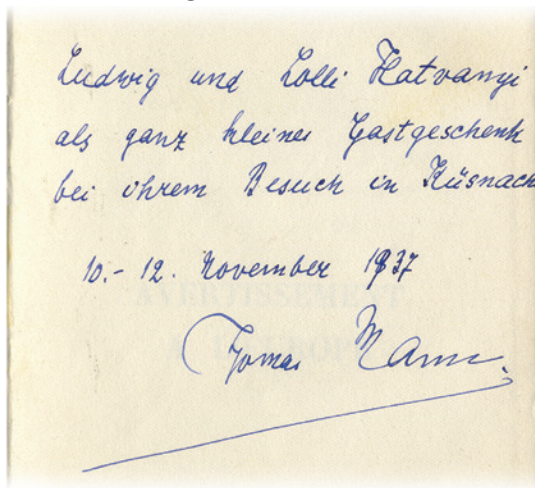 Ludwig und Lolli Hatvanyi
als ganz kleines Gastgeschenk
bei ihrem Besuch in Küsnach
10.- 12. November 1937
AVERTISSEMENT
A L'EUROPE
Thomas Mann.